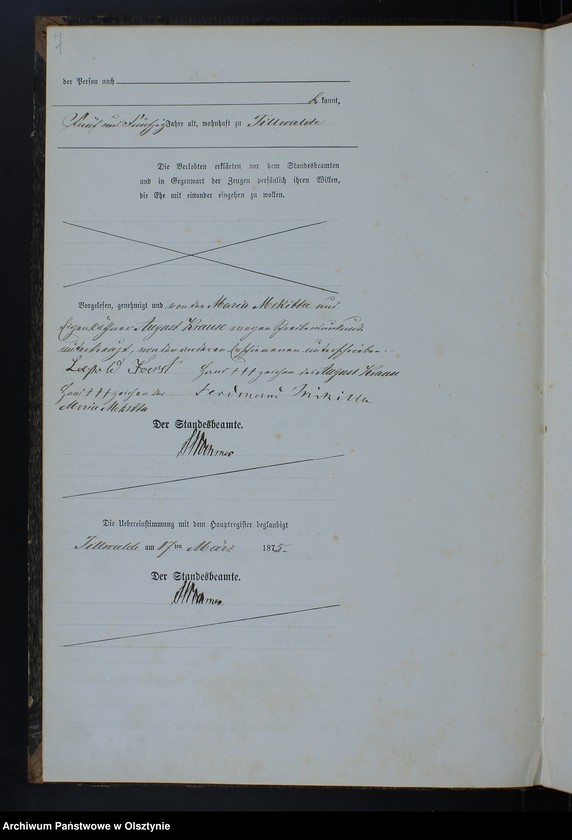 7
der Person nach
kannt,
Fünf und Fünfzig Jahre alt, wohnhaft zu Tillwalde
Die Verlobten erklärten vor dem Standesbeamten
und in Gegenwart der Zeugen persönlich ihren Willen,
die Ehe mit einander eingehen zu wollen.
Vorgelesen, genehmigt und von der Maria Mekitta und
Eigenkäthner August Krause wegen Schreibensunkunde
unterkreuzt, von den anderen Erschienenen unterschrieben.
Leopold Foerst Hand +++ zeichen des August Krause
Hand +++ zeichen der Ferdinand
Maria Mekitta
Der Standesbeamte.
Die Uebereinstimmung mit dem Hauptregister beglaubigt
Tillwalde am 17ten März 1875.
Der Standesbeamte.
Archiwum Państwowe w Olsztynie